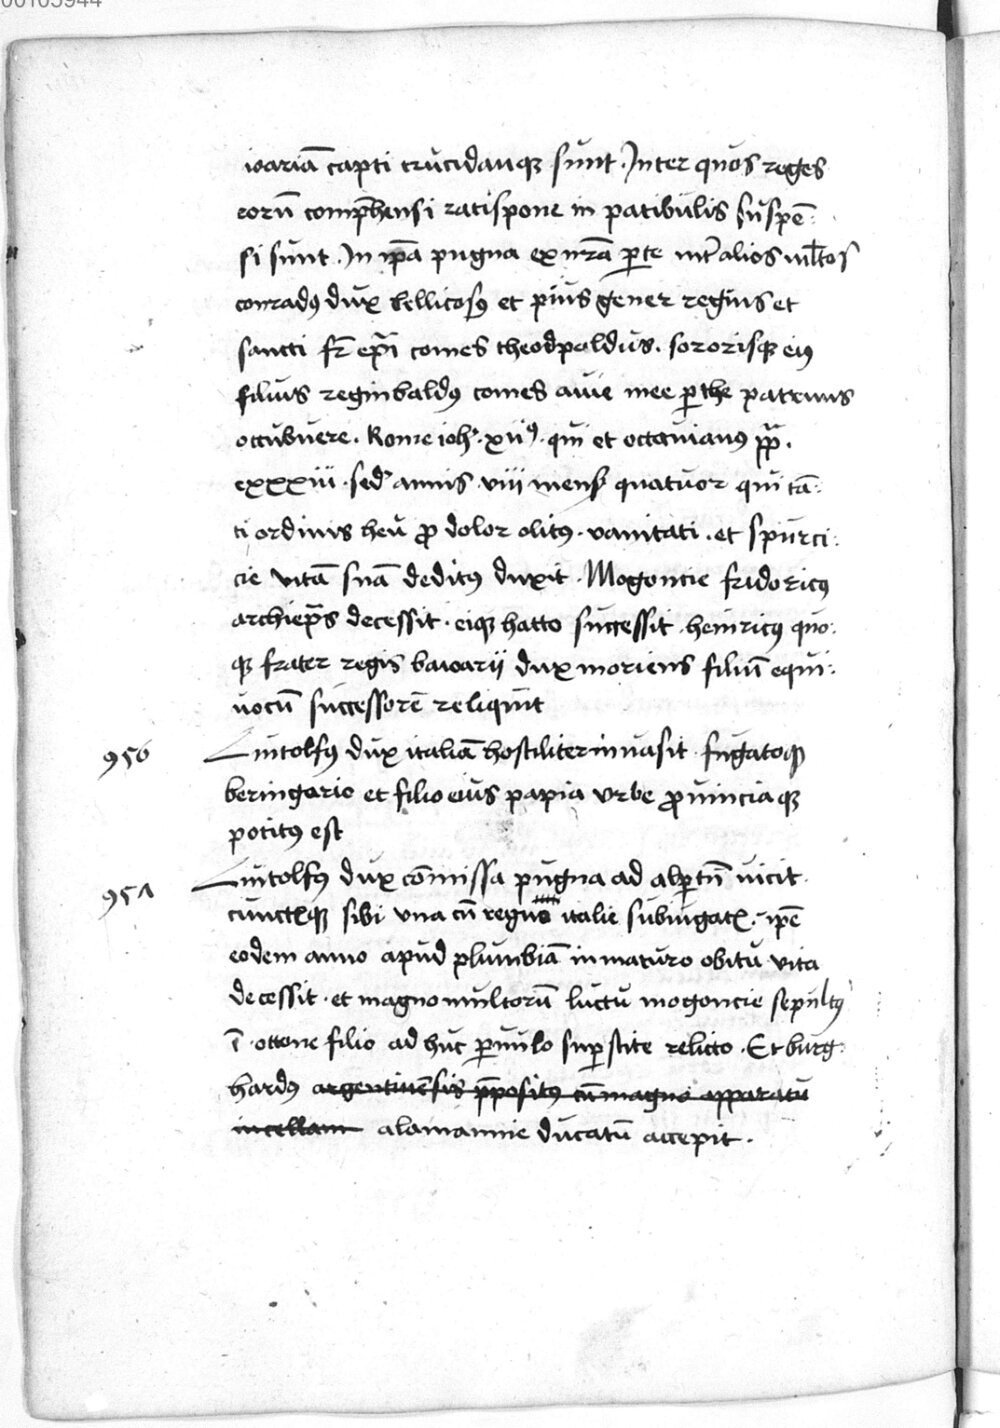 00105944
ioariā capti trucidatiq; sunt. Inter quos reges
eorū comp̄hensi ratispone in patibulis suspē:
si sunt. In ip̄a pugna ex nr̄a ꝑte int̄ alios ml̄tos
conradꝰ dux bellicosꝰ et pius gener regius et
sancti fr̄ ep̄i comes theodpaldus. sororisq; eiꝰ
filius reginbaldꝰ comes auie mee ꝑthe patruus
occubuere. Rome ioh̄. xiiꝰ. qui et octauianꝰ pp̄.
cxxxiii. sed̄ annis viii mens̄ quatuor qui tā:
ti ordinis heu ꝓ dolor olitꝰ. vanitati. et spurci:
cie vitā suā deditꝰ duxit. Mogoncie fridoricꝰ
archiep̄s decessit. eiq; hatto successit. heinricꝰ quo:
q; frater regis bawarii dux moriens filiū equi:
uocū successorē reliquit
956 Liutolfꝰ dux italiā hostiliter inuasit. fugatoq;
beringario et filio eius papia vrbe ꝓuinciaq;
potitꝰ est
957 Liutolfꝰ dux cōmissa pugna ad alꝑtū vicit.
cunctisq; sibi vna cū regno italie subiugatꝭ. ip̄e
eodem anno apud plumbiā inmaturo obitu vita
decessit. et magno multorū luctu mogoncie sepultꝰ
ī. ottone filio ad huc ꝑuulo suꝑstite relicto. Et burg:
hardꝰ argentinēsis p̄positꝰ cū magno apparatu
in cellam alamannie ducatū accepit.